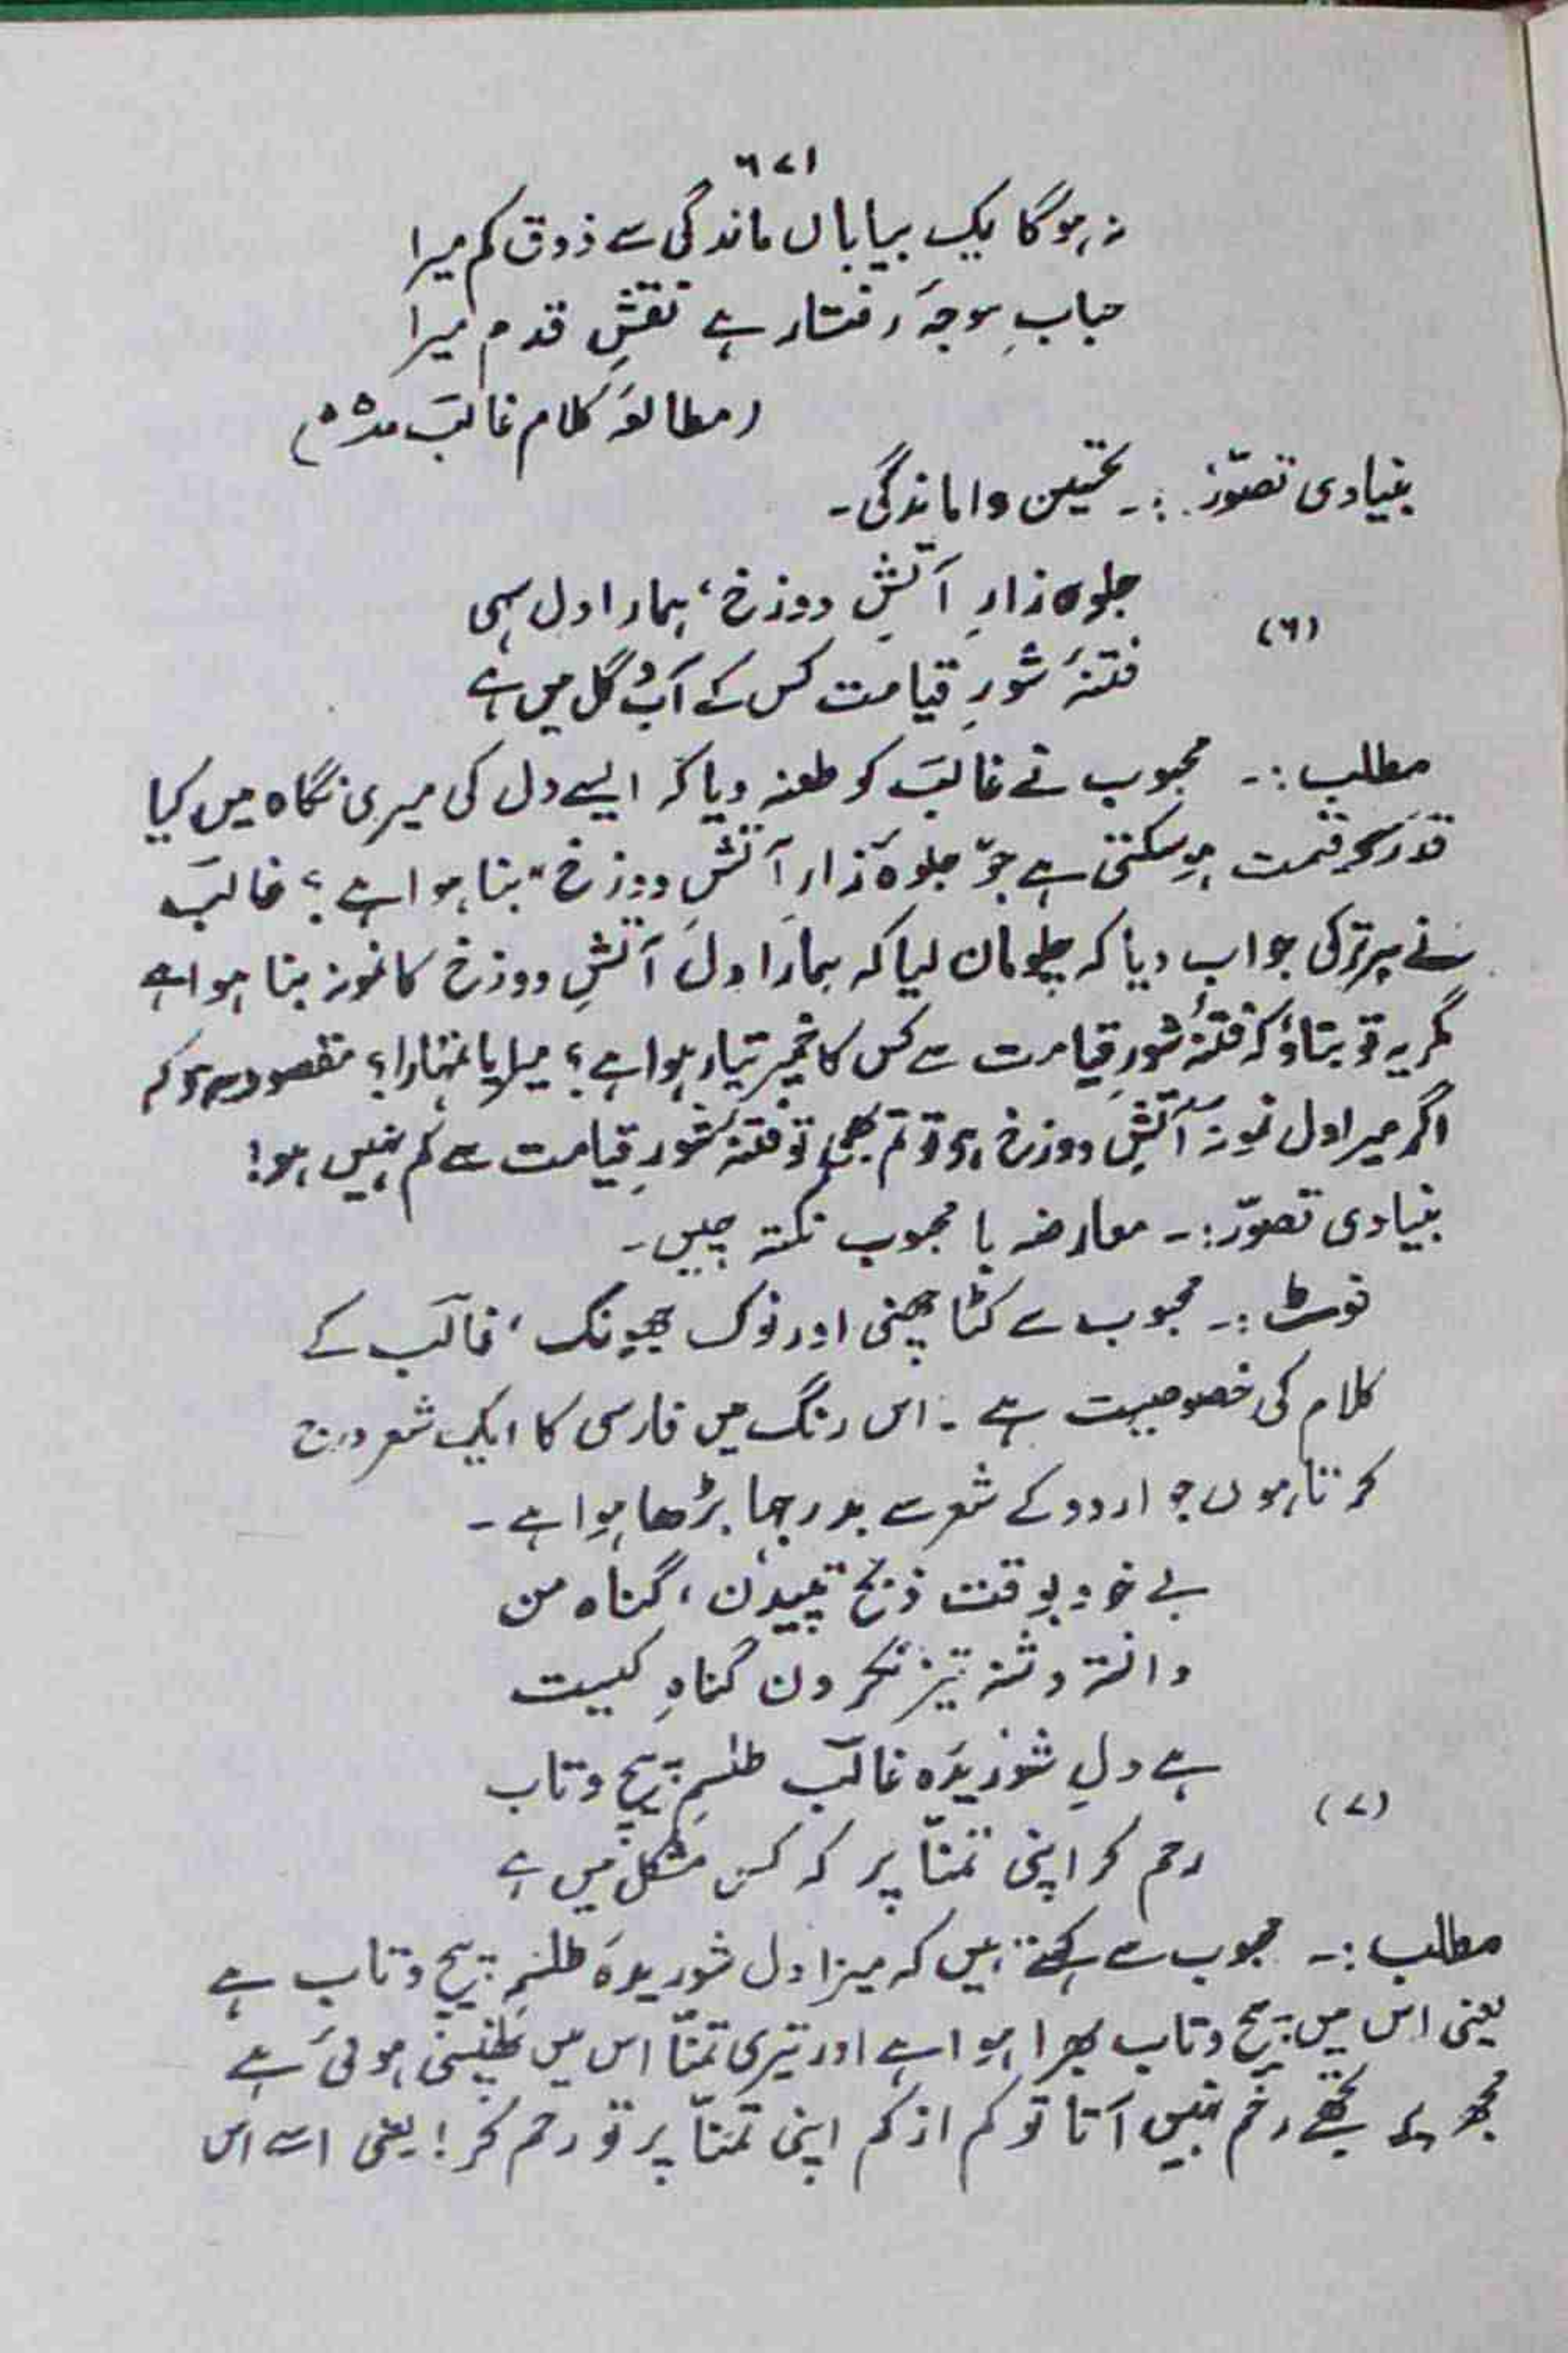 ٦٧١
نہ ہوگا یک بیاباں ماندگی سے ذوق کم میرا
حبابِ موجۂ رفتار ہے نقشِ قدم میرا
(مطالعۂ کلام غالب
بنیادی تصوّر :۔ تحسین واماندگی۔
(٦)
جلوہ زارِ آتشِ دوزخ، ہمارا دل سہی
فتنۂ شورِ قیامت کس کے آب و گل میں ہے
مطلب :۔ محبوب نے غالب کو طعنہ دیا کہ ایسے دل کی میری نگاہ میں کیا
قدر و قیمت ہو سکتی ہے جو "جلوہ زارِ آتشِ دوزخ" بنا ہوا ہے؟ غالب
نے ہر ترکی جواب دیا کہ چلو مان لیا کہ ہمارا دل آتشِ دوزخ کا نمونہ بنا ہوا ہے
مگر یہ تو بتاؤ کہ فتنۂ شورِ قیامت سے کس کا خمیر تیار ہوا ہے؟ میرا یا تمہارا؟ مقصود یہ ہے کہ
اگر میرا دل نمونۂ آتشِ دوزخ ہے تو تم بھی تو فتنۂ شورِ قیامت سے کم نہیں ہو!
بنیادی تصوّر :۔ معارضہ با محبوب نکتہ چیں۔
نوٹ :۔ محبوب سے کٹا چھنی اور نوک جھونک، غالب کے
کلام کی خصوصیت ہے۔ اس رنگ میں فارسی کا ایک شعر درج
کرتا ہوں جو اردو کے شعر سے بدرجہا بڑھا ہوا ہے۔
بے خود بوقت ذبح تپیدن، گناہ من
دانستہ دشنہ تیز نکردن گناہِ کیست
(٧)
ہے دلِ شوریدۂ غالب طلسمِ پیچ و تاب
رحم کر اپنی تمنّا پر کہ کس مشکل میں ہے
مطلب :۔ محبوب سے کہتے ہیں کہ میرا دل شوریدہ طلسمِ پیچ و تاب ہے
یعنی اس میں پیچ و تاب بھرا ہوا ہے اور تیری تمنّا اس میں پھنسی ہوئی ہے
مجھ پر تجھے رحم نہیں آتا تو کم از کم اپنی تمنّا پر تو رحم کر! یعنی اسے اس